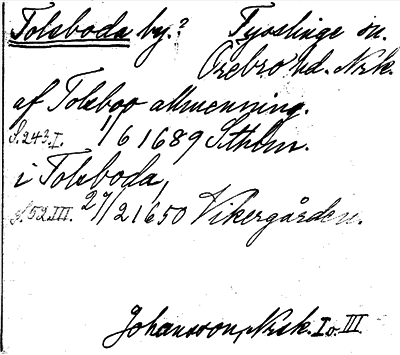 Tolsboda by.? Tysslinge sn.
Örebro hd. Nrk.
af Tolsboo allmenning.
S.243.I. 1/6 1689 Sthlm.
i Tolsboda,
S.52.III. 27/2 1650 Vikergården.
Johansson, Nrk. I o. III.